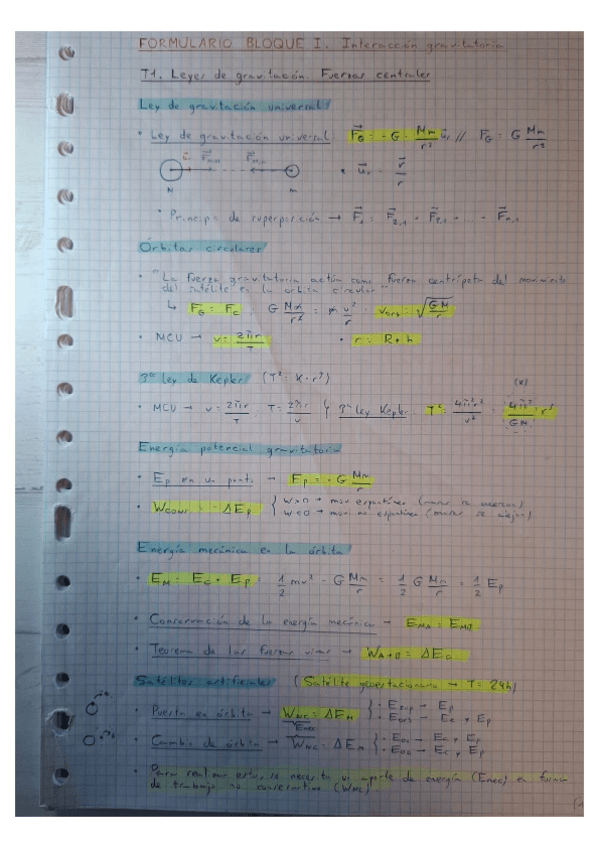 FORMULARIO BLOQUE I. Interacción gravitatoria
T1. Leyes de gravitación. Fuerzas centrales
Ley de gravitación universal
• Ley de gravitación universal: F⃗G = - G · Mm/r² u⃗r // FG = G Mm/r²
M m • u⃗r = r⃗/r
• Principio de superposición → F⃗1 = F⃗2,1 + F⃗3,1 + ... + F⃗n,1
Órbitas circulares
• "La fuerza gravitatoria actúa como fuerza centrípeta del movimiento
del satélite en la órbita circular"
↳ FG = FC G Mm/r² = m v²/r vorb = √GM/r
• MCU → v = 2πr/T • r = R + h
3ª ley de Kepler (T² = K · r³)
(K)
• MCU → v = 2πr/T T = 2πr/v 3ª ley Kepler T² = 4π²r²/v² = 4π²/GM · r³
Energía potencial gravitatoria
• Ep en un punto → Ep = - G Mm/r
• Wcons = - ΔEp { W>0 → mov espontáneo (masas se acercan)
W<0 → mov no espontáneo (masas se alejan)
Energía mecánica en la órbita
• EM = Ec + Ep 1/2 mv² - G Mm/r = - 1/2 G Mm/r = 1/2 Ep
• Conservación de la energía mecánica → EMA = EMB
• Teorema de las fuerzas vivas → WA→B = ΔEc
Satélites artificiales (Satélite geoestacionario → T = 24h)
• Puesta en órbita → WNC = ΔEM { • Esup → Ep
Enec • Eorb → Ec + Ep
• Cambio de órbita → WNC = ΔEM { • → Ec + Ep
• → Ec + Ep
• Para realizar esto, se necesita un aporte de energía (Enec) en forma
de trabajo no conservativo (WNC)